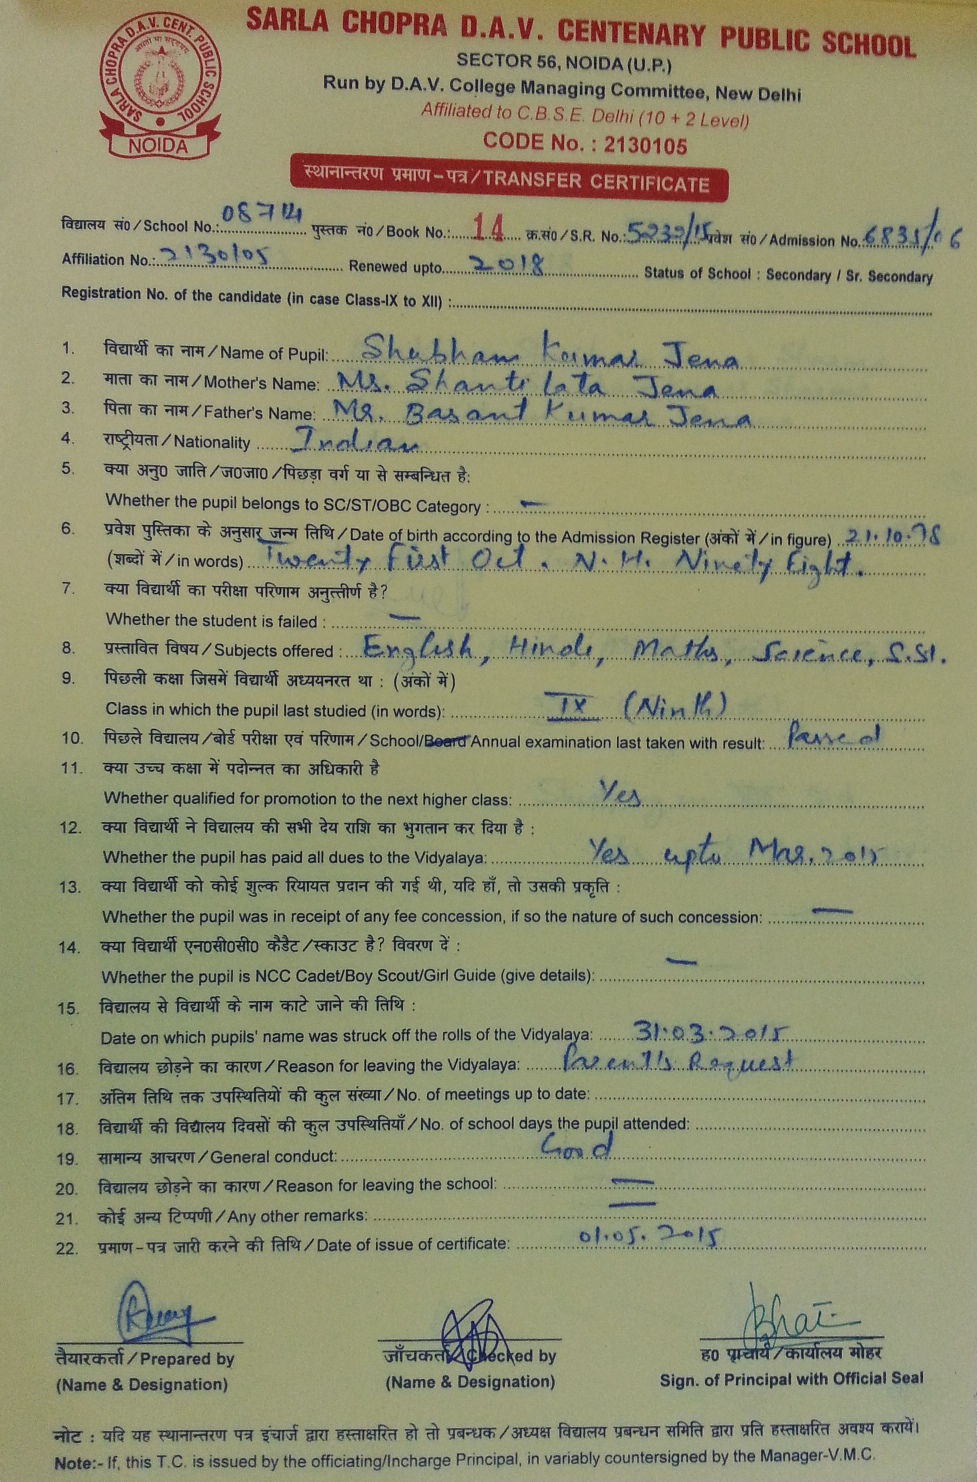 SARLA CHOPRA D.A.V. CENTENARY PUBLIC SCHOOL
SARLA CHOPRA D.A.V. CENT. PUBLIC SCHOOL
NOIDA
SECTOR 56, NOIDA (U.P.)
Run by D.A.V. College Managing Committee, New Delhi
Affiliated to C.B.S.E. Delhi (10 + 2 Level)
CODE No. : 2130105
स्थानान्तरण प्रमाण-पत्र/TRANSFER CERTIFICATE
विद्यालय सं0/School No.: 08714 पुस्तक नं0/Book No.: 14 क्र.सं0/S.R. No.: 5232/15 प्रवेश सं0/Admission No. 6835/06
Affiliation No.: 2130105 Renewed upto 2018 Status of School : Secondary / Sr. Secondary
Registration No. of the candidate (in case Class-IX to XII) :
1. विद्यार्थी का नाम/Name of Pupil: Shubham Kumar Jena
2. माता का नाम/Mother's Name: Ms. Shanti lata Jena
3. पिता का नाम/Father's Name: Mr. Basant Kumar Jena
4. राष्ट्रीयता/Nationality Indian
5. क्या अनु0 जाति/ज0जा0/पिछड़ा वर्ग या से सम्बन्धित है:
Whether the pupil belongs to SC/ST/OBC Category : —
6. प्रवेश पुस्तिका के अनुसार जन्म तिथि/Date of birth according to the Admission Register (अंकों में/in figure) 21.10.98
(शब्दों में/in words) Twenty First Oct. N. H. Ninety Eight.
7. क्या विद्यार्थी का परीक्षा परिणाम अनुत्तीर्ण है?
Whether the student is failed : —
8. प्रस्तावित विषय/Subjects offered : English, Hindi, Maths, Science, S.St.
9. पिछली कक्षा जिसमें विद्यार्थी अध्ययनरत था : (अंकों में)
Class in which the pupil last studied (in words): IX (Ninth)
10. पिछले विद्यालय/बोर्ड परीक्षा एवं परिणाम/School/Board Annual examination last taken with result: Passed
11. क्या उच्च कक्षा में पदोन्नत का अधिकारी है
Whether qualified for promotion to the next higher class: Yes
12. क्या विद्यार्थी ने विद्यालय की सभी देय राशि का भुगतान कर दिया है :
Whether the pupil has paid all dues to the Vidyalaya: Yes upto Mar. 2015
13. क्या विद्यार्थी को कोई शुल्क रियायत प्रदान की गई थी, यदि हाँ, तो उसकी प्रकृति :
Whether the pupil was in receipt of any fee concession, if so the nature of such concession: —
14. क्या विद्यार्थी एन0सी0सी0 कैडैट/स्काउट है? विवरण दें :
Whether the pupil is NCC Cadet/Boy Scout/Girl Guide (give details): —
15. विद्यालय से विद्यार्थी के नाम काटे जाने की तिथि :
Date on which pupils' name was struck off the rolls of the Vidyalaya: 31.03.2015
16. विद्यालय छोड़ने का कारण/Reason for leaving the Vidyalaya: Parent's Request
17. अंतिम तिथि तक उपस्थितियों की कुल संख्या/No. of meetings up to date:
18. विद्यार्थी की विद्यालय दिवसों की कुल उपस्थितियाँ/No. of school days the pupil attended:
19. सामान्य आचरण/General conduct: Good
20. विद्यालय छोड़ने का कारण/Reason for leaving the school: —
21. कोई अन्य टिप्पणी/Any other remarks: —
22. प्रमाण-पत्र जारी करने की तिथि/Date of issue of certificate: 01.05.2015
तैयारकर्ता/Prepared by जाँचकर्ता/Checked by ह0 प्राचार्य/कार्यालय मोहर
(Name & Designation) (Name & Designation) Sign. of Principal with Official Seal
नोट : यदि यह स्थानान्तरण पत्र इंचार्ज द्वारा हस्ताक्षरित हो तो प्रबन्धक/अध्यक्ष विद्यालय प्रबन्धन समिति द्वारा प्रति हस्ताक्षरित अवश्य करायें।
Note:- If, this T.C. is issued by the officiating/Incharge Principal, in variably countersigned by the Manager-V.M.C.